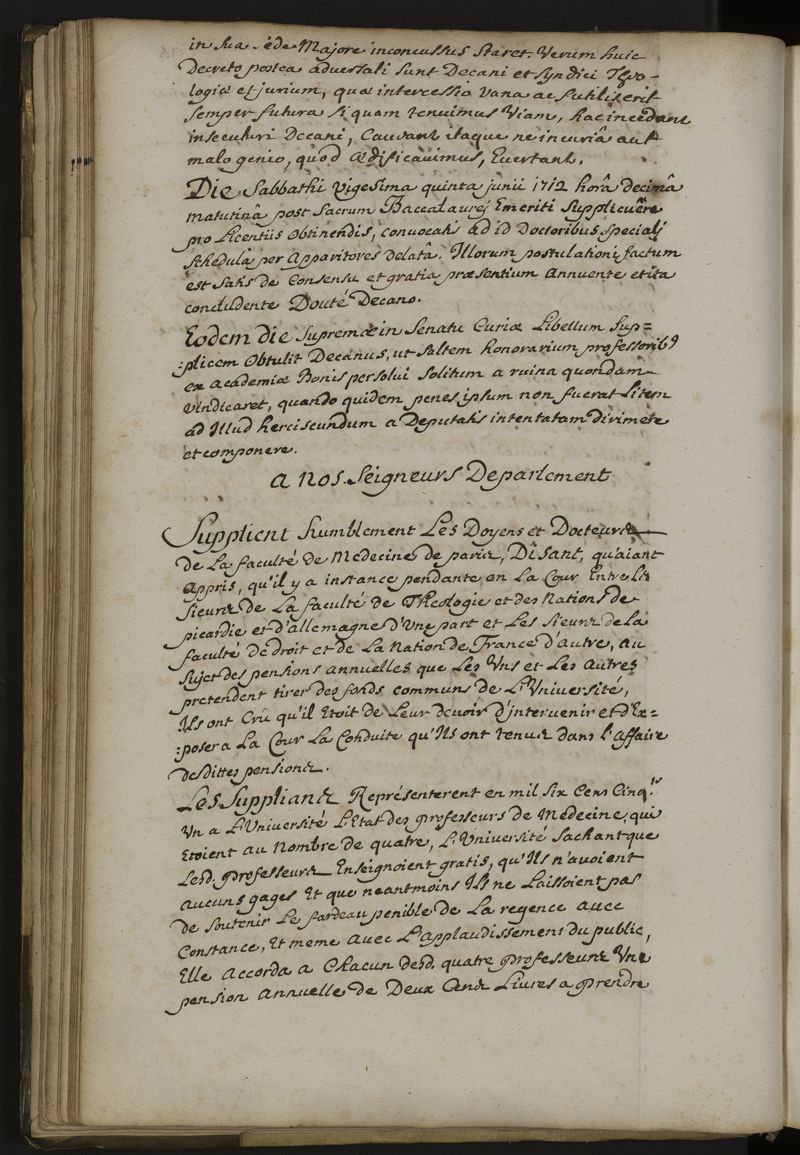 in sua sede Majore inconcussus staret. Verum huic
Decreto postea adversati sunt Decani et syndici Theo-
logiæ et jurium, quæ intercessio vana ac futilis erit
semper futura si quam tenuimus Viam, hac incedant
insecuturi Decani, Caveant itaque ne incuriâ aut
malo genio, quod ædificavimus, Evertant.
Die Sabbathi vigesima quinta junii 1712 horâ decimâ
matutinâ post sacrum Baccalaurej Emeriti supplicuêre
pro licentiis obtinendis, convocatis ad id Doctoribus speciali
schedulâ per apparitores delatâ. Illorum postulationi factum
est satis de Consensu et gratia præsentium annuente et ita
concludente Douté Decano.
Eodem die supremæ in senatu Curiæ Libellum sup=
:plicem obtulit Decanus, ut saltem honorarium professorib9
ex academiæ Bonis persolui solitum a ruina quondam
vindicaret, quando quidem penes ipsum non fuerat Litem
ad Illud herciscundum a Deputatis intentatam dirimere
et componere.
a Nos. Seigneurs Deparlement
Supplient humblement Les Doyens et Docteurs
de La faculté de Medecine de paris, Disant, qu'aiant
appris, qu'il y a instance pendante en La Cour Entre les
sieurs de La faculté de Theologie et des Nations de
picardie et d'allemagne d'Une part et Les sieurs de La
faculté de droit et de La Nation de France d'autre, au
sujet des pensions annuelles que Les Uns et Les Autres
pretendent tirer des fonds communs de L'Université,
Ils ont Crû qu'il Etoit de Leur devoir d'intervenir et d'Ex=
:poser a La Cour La Conduite qu'Ils ont tenue dans l'affaire
desdittes pensions.
Les Supplians Représenterent en mil six Cens Cinq.te
Un a L'Université L'Etat des professeurs de Medecine, qui
Etoient au Nombre de quatre, L'Université sachant que
Lesd. professeurs Enseignoient gratis, qu'Ils n'avoient
aucuns gages Et que neantmoins Ils ne Laissoient pas
de soutenir Le fardeau penible de La regence avec
Constance, Et meme avec L'applaudissement du public,
Elle accorda a Chacun desd. quatre professeurs Une
pension annuelle de Deux Cens Livres a prendre